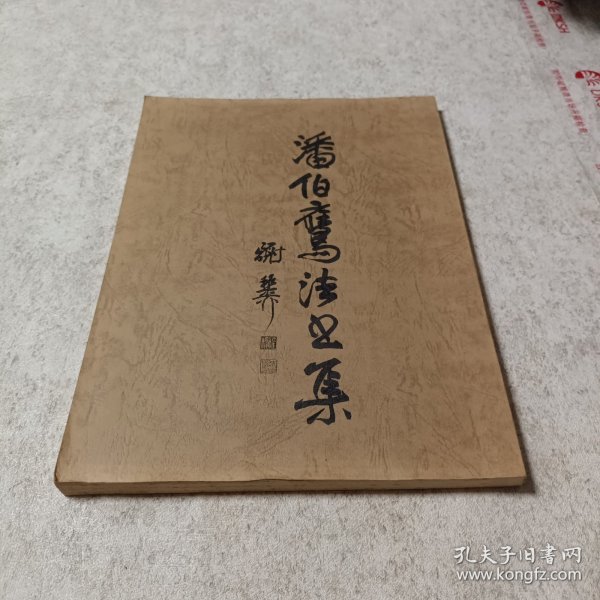 潘伯鹰法书集
孔夫子旧书网
www.kongfz.com